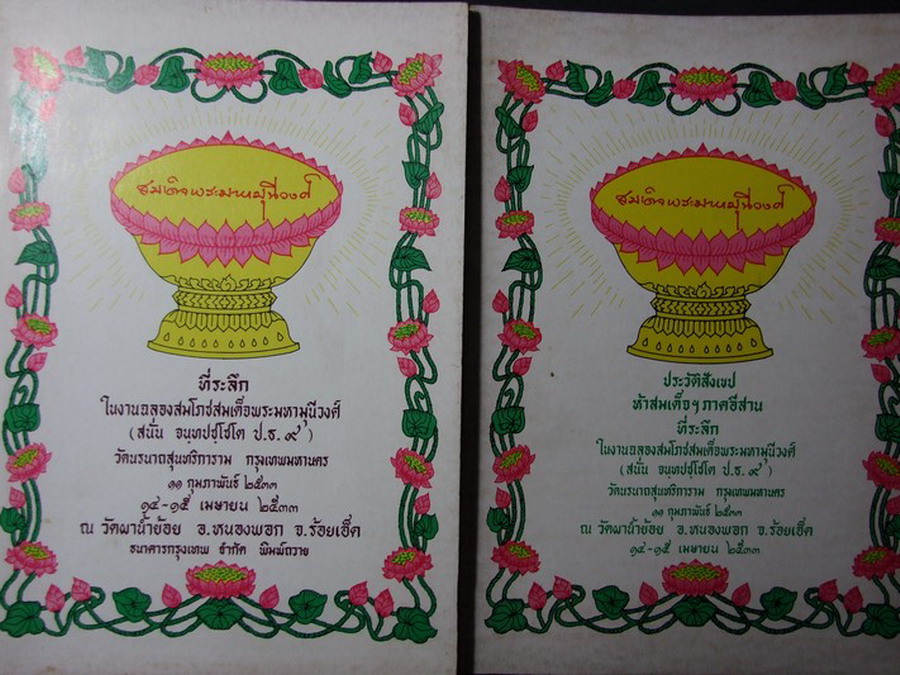 สมเด็จพระมหามุนีวงศ์
ที่ระลึก
ในงานฉลองสมโภชสมเด็จพระมหามุนีวงศ์
(สนั่น จนฺทปชฺโชโต ป.ธ.๙)
วัดนรนาถสุนทริการาม กรุงเทพมหานคร
๑๑ กุมภาพันธ์ ๒๕๓๓
๑๔-๑๕ เมษายน ๒๕๓๓
ณ วัดผาน้ำย้อย อ.หนองพอก จ.ร้อยเอ็ด
ธนาคารกรุงเทพ จำกัด พิมพ์ถวาย
สมเด็จพระมหามุนีวงศ์
ประวัติสังเขป
ห้าสมเด็จฯภาคอีสาน
ที่ระลึก
ในงานฉลองสมโภชสมเด็จพระมหามุนีวงศ์
(สนั่น จนฺทปชฺโชโต ป.ธ.๙)
วัดนรนาถสุนทริการาม กรุงเทพมหานคร
๑๑ กุมภาพันธ์ ๒๕๓๓
ณ วัดผาน้ำย้อย อ.หนองพอก จ.ร้อยเอ็ด
๑๔-๑๕ เมษายน ๒๕๓๓